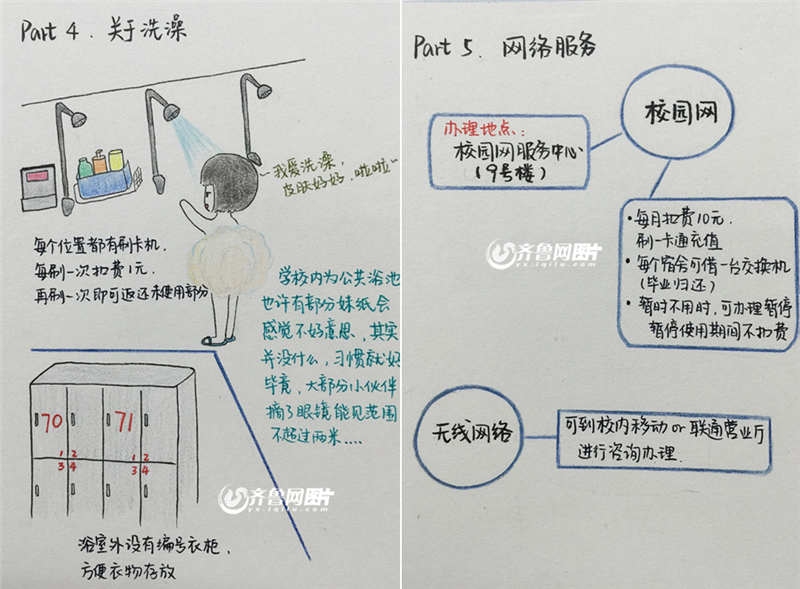 Part 4. 关于洗澡
我爱洗澡,
皮肤好好,啦啦~
每个位置都有刷卡机.
每刷一次扣费1元.
再刷一次即可返还未使用部分
学校内为公共浴池
也许有部分妹纸会
感觉不好意思,其实
并没什么,习惯就好
毕竟,大部分小伙伴
摘了眼镜能见范围
不超过两米....
70 71
1 2 1 2
3 4 3 4
齐鲁网图片
yx.iqilu.com
浴室外设有编号衣柜,
方便衣物存放
Part 5. 网络服务
校园网
办理地点:
校园网服务中心
(9号楼)
·每月扣费10元.
刷一卡通充值
·每个宿舍可借一台交换机
(毕业归还)
·暂时不用时,可办理暂停
暂停使用期间不扣费
齐鲁网图片
yx.iqilu.com
无线网络
可到校内移动or联通营业厅
进行咨询办理.